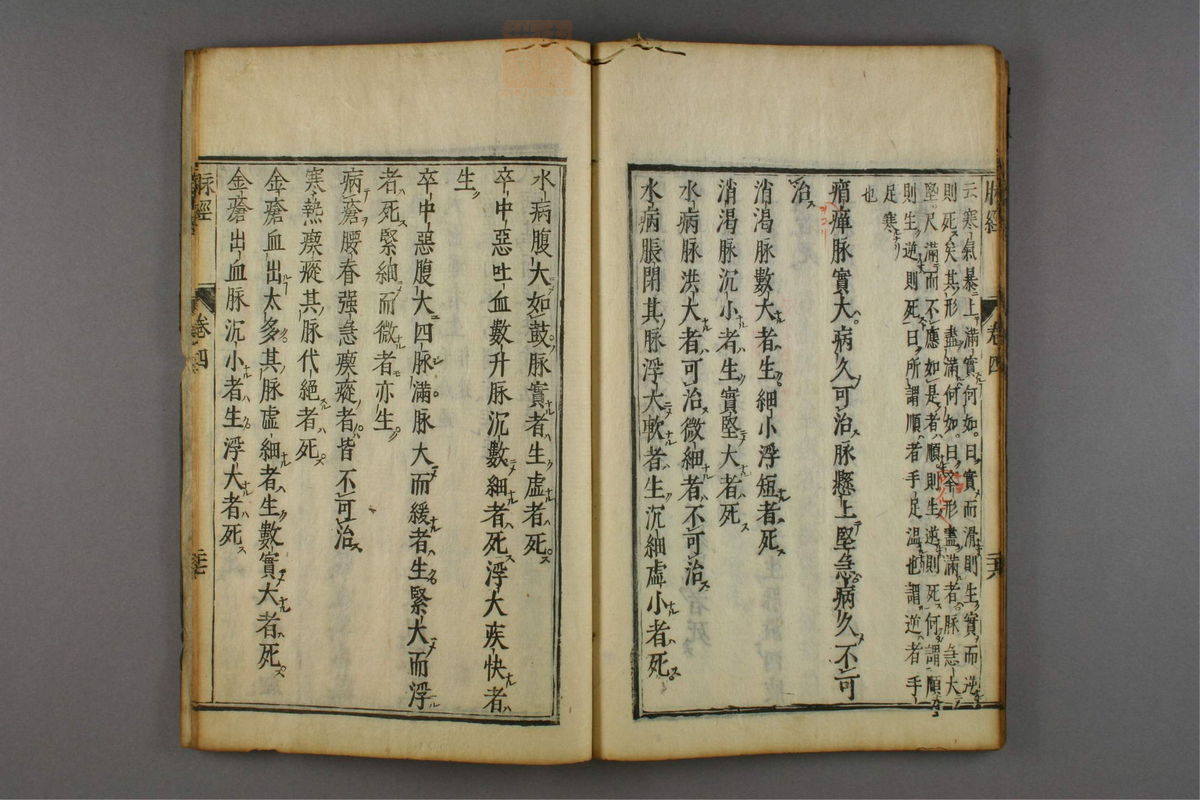 脉經
卷四
二十六
云寒氣暴上滿實何如曰實而滑則生實而逆
則死矣其形盡滿何如曰夲形盡滿者脉急大
堅尺滿而不應如是者順則生逆則死何謂順
則生逆則死曰所謂順者手足温也謂逆者手
足寒
也
痟癉脉實大病久可治脉懸上堅急病久不可
治
消渴脉數大者生細小浮短者死
消渴脉沉小者生實堅大者死
水病脉洪大者可治微細者不可治
水病脹閉其脉浮大軟者生沉細虛小者死
水病腹大如鼓脉實者生虛者死
卒中惡吐血數升脉沉數細者死浮大疾快者
生
卒中惡腹大四脉滿脉大而緩者生緊大而浮
者死緊細而微者亦生
病瘡腰脊强急瘈瘲者皆不可治
寒熱瘈瘲其脉代絕者死
金瘡血出太多其脉虛細者生數實大者死
金瘡出血脉沉小者生浮大者死
脉經
卷四
二十七